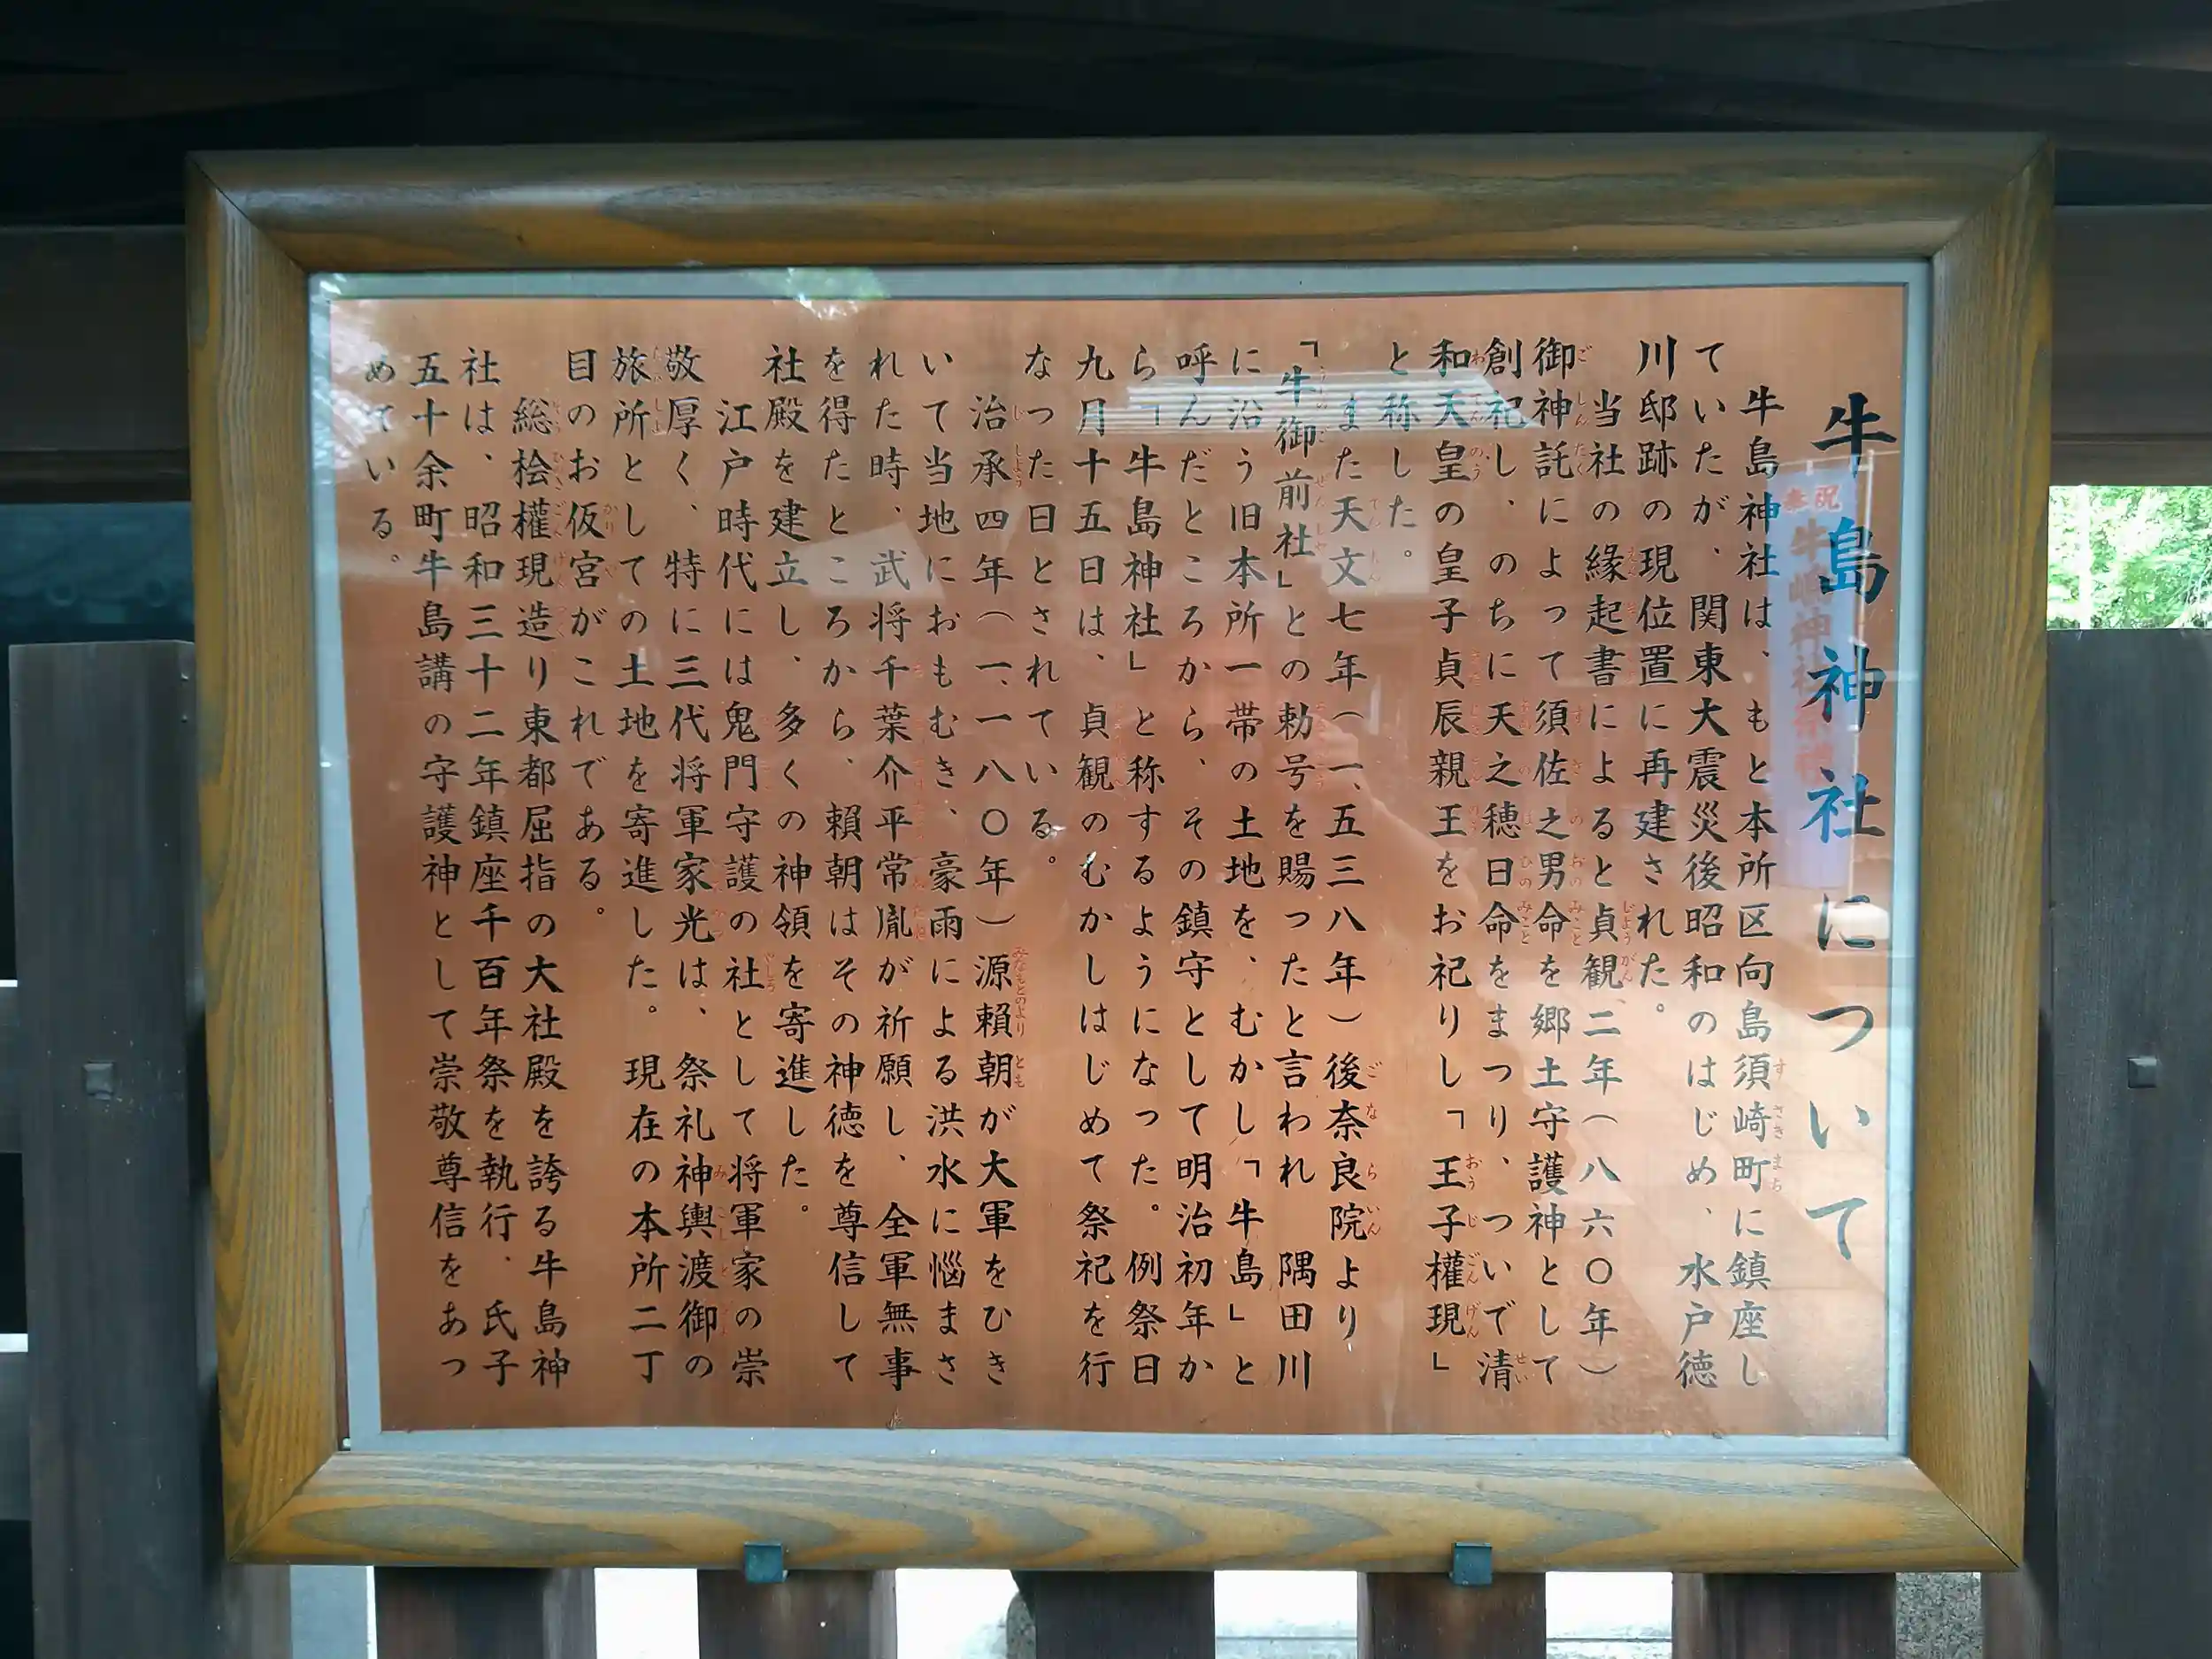 牛島神社について
牛島神社は、もと本所区向島須崎町に鎮座し
ていたが、関東大震災後昭和のはじめ、水戸徳
川邸跡の現位置に再建された。
当社の縁起書によると貞観、二年(八六〇年)
御神託によって須佐之男命を郷土守護神として
創祀し、のちに天之穂日命をまつり、ついで清
和天皇の皇子貞辰親王をお祀りし「王子權現」
と称した。
また天文七年(一、五三八年)後奈良院より
「牛御前社」との勅号を賜ったと言われ 隅田川
に沿う旧本所一帯の土地を、むかし「牛島」と
呼んだところから、その鎮守として明治初年か
ら「牛島神社」と称するようになった。例祭日
九月十五日は、貞観のむかしはじめて祭祀を行
なった日とされている。
治承四年(一、一八〇年)源賴朝が大軍をひき
いて当地におもむき、豪雨による洪水に悩まさ
れた時、武将千葉介平常胤が祈願し、全軍無事
を得たところから、賴朝はその神徳を尊信して
社殿を建立し、多くの神領を寄進した。
江戸時代には鬼門守護の社として将軍家の崇
敬厚く、特に三代将軍家光は、祭礼神輿渡御の
旅所としての土地を寄進した。現在の本所二丁
目のお仮宮がこれである。
総桧權現造り東都屈指の大社殿を誇る牛島神
社は、昭和三十二年鎮座千百年祭を執行、氏子
五十余町牛島講の守護神として崇敬尊信をあつ
めている。